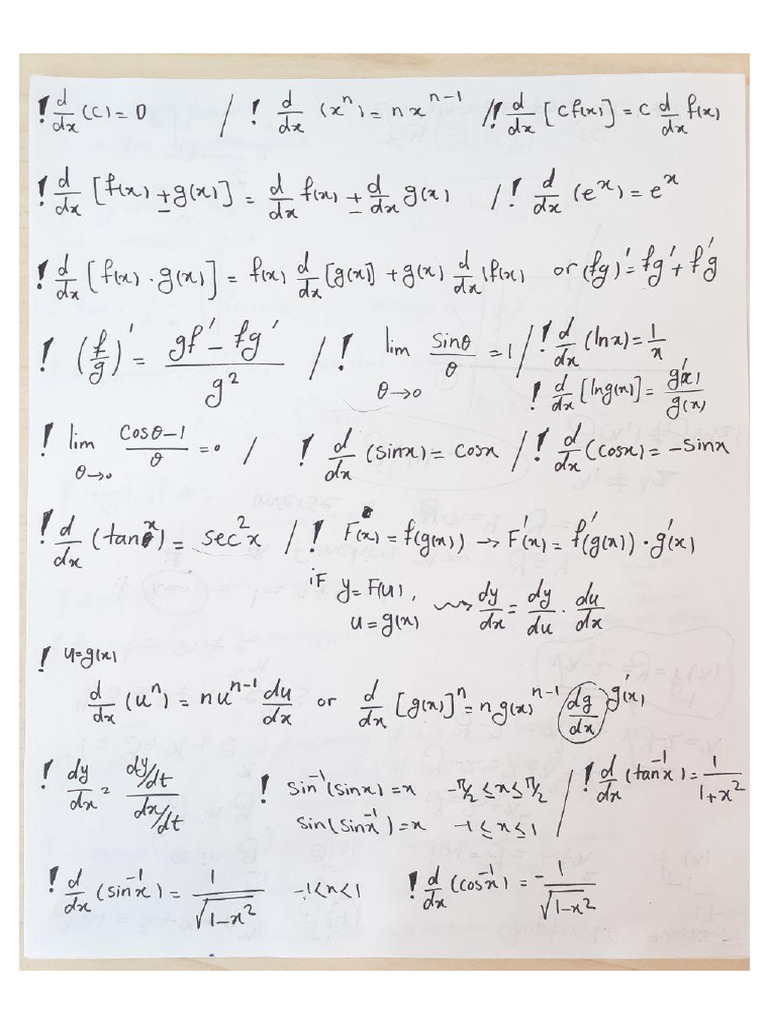 ! d/dx (c) = 0 / ! d/dx (xⁿ) = n xⁿ⁻¹ / ! d/dx [c f(x)] = c d/dx f(x)
! d/dx [f(x) ± g(x)] = d/dx f(x) ± d/dx g(x) / ! d/dx (eˣ) = eˣ
! d/dx [f(x) · g(x)] = f(x) d/dx [g(x)] + g(x) d/dx f(x) or (fg)' = fg' + f'g
! (f/g)' = (gf' − fg')/g² / ! lim θ→0 sinθ/θ = 1 / ! d/dx (lnx) = 1/x
! d/dx [ln g(x)] = g'(x)/g(x)
! lim θ→0 (cosθ−1)/θ = 0 / ! d/dx (sinx) = cosx / ! d/dx (cosx) = −sinx
! d/dx (tan x) = sec²x / ! F(x) = f(g(x)) → F'(x) = f'(g(x)) · g'(x)
if y = F(u), u = g(x) ⇝ dy/dx = dy/du · du/dx
! u = g(x)
d/dx (uⁿ) = n uⁿ⁻¹ du/dx or d/dx [g(x)]ⁿ = n g(x)ⁿ⁻¹ dg/dx g'(x)
! dy/dx = (dy/dt)/(dx/dt) ! sin⁻¹(sinx) = x −π/2 ≤ x ≤ π/2 / ! d/dx (tan⁻¹x) = 1/(1+x²)
sin(sin⁻¹x) = x −1 ≤ x ≤ 1
! d/dx (sin⁻¹x) = 1/√(1−x²) −1 < x < 1 ! d/dx (cos⁻¹x) = −1/√(1−x²)